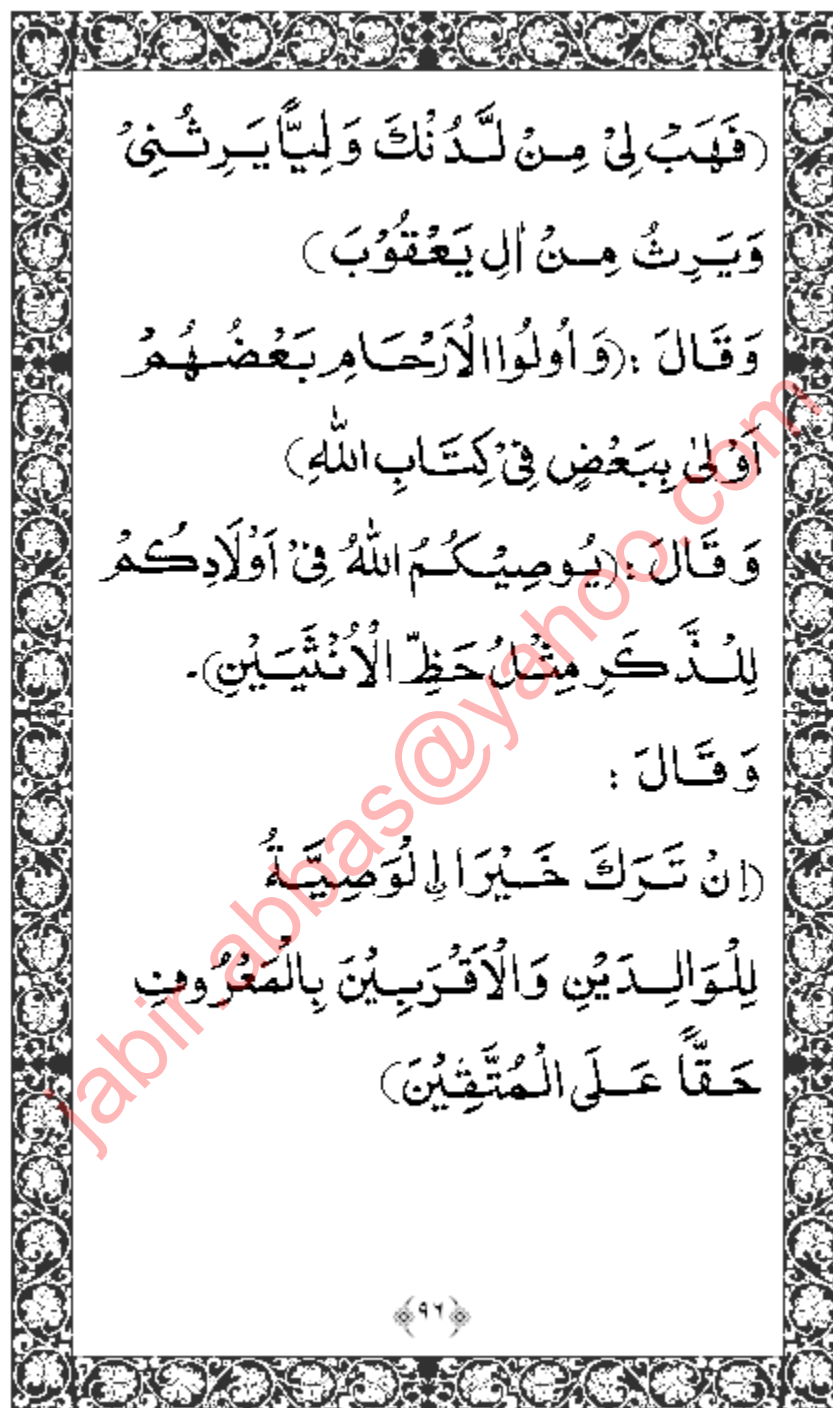 (فَهَبْ لِيْ مِنْ لَّدُنْكَ وَلِيًّا يَرِثُنِيْ
وَيَرِثُ مِنْ اٰلِ يَعْقُوْبَ)
وَقَالَ :(وَ اُولُوْا الْاَرْحَامِ بَعْضُهُمْ
اَوْلٰى بِبَعْضٍ فِيْ كِتَابِ اللّٰهِ)
وَ قَالَ :(يُوصِيْكُمُ اللّٰهُ فِيْ اَوْلَادِكُمْ
لِلْذَّكَرِ مِثْلُ حَظِّ الْاُنْثَيَيْنِ)۔
وَ قَالَ :
(اِنْ تَرَكَ خَيْرَا لِۨ لْوَصِيَّةُ
لِلْوَالِدَيْنِ وَالْاَقْرَبِيْنَ بِالْمَعْرُوفِ
حَقًّا عَلَى الْمُتَّقِيْنَ)
﴿٩٦﴾
jabir.abbas@yahoo.com